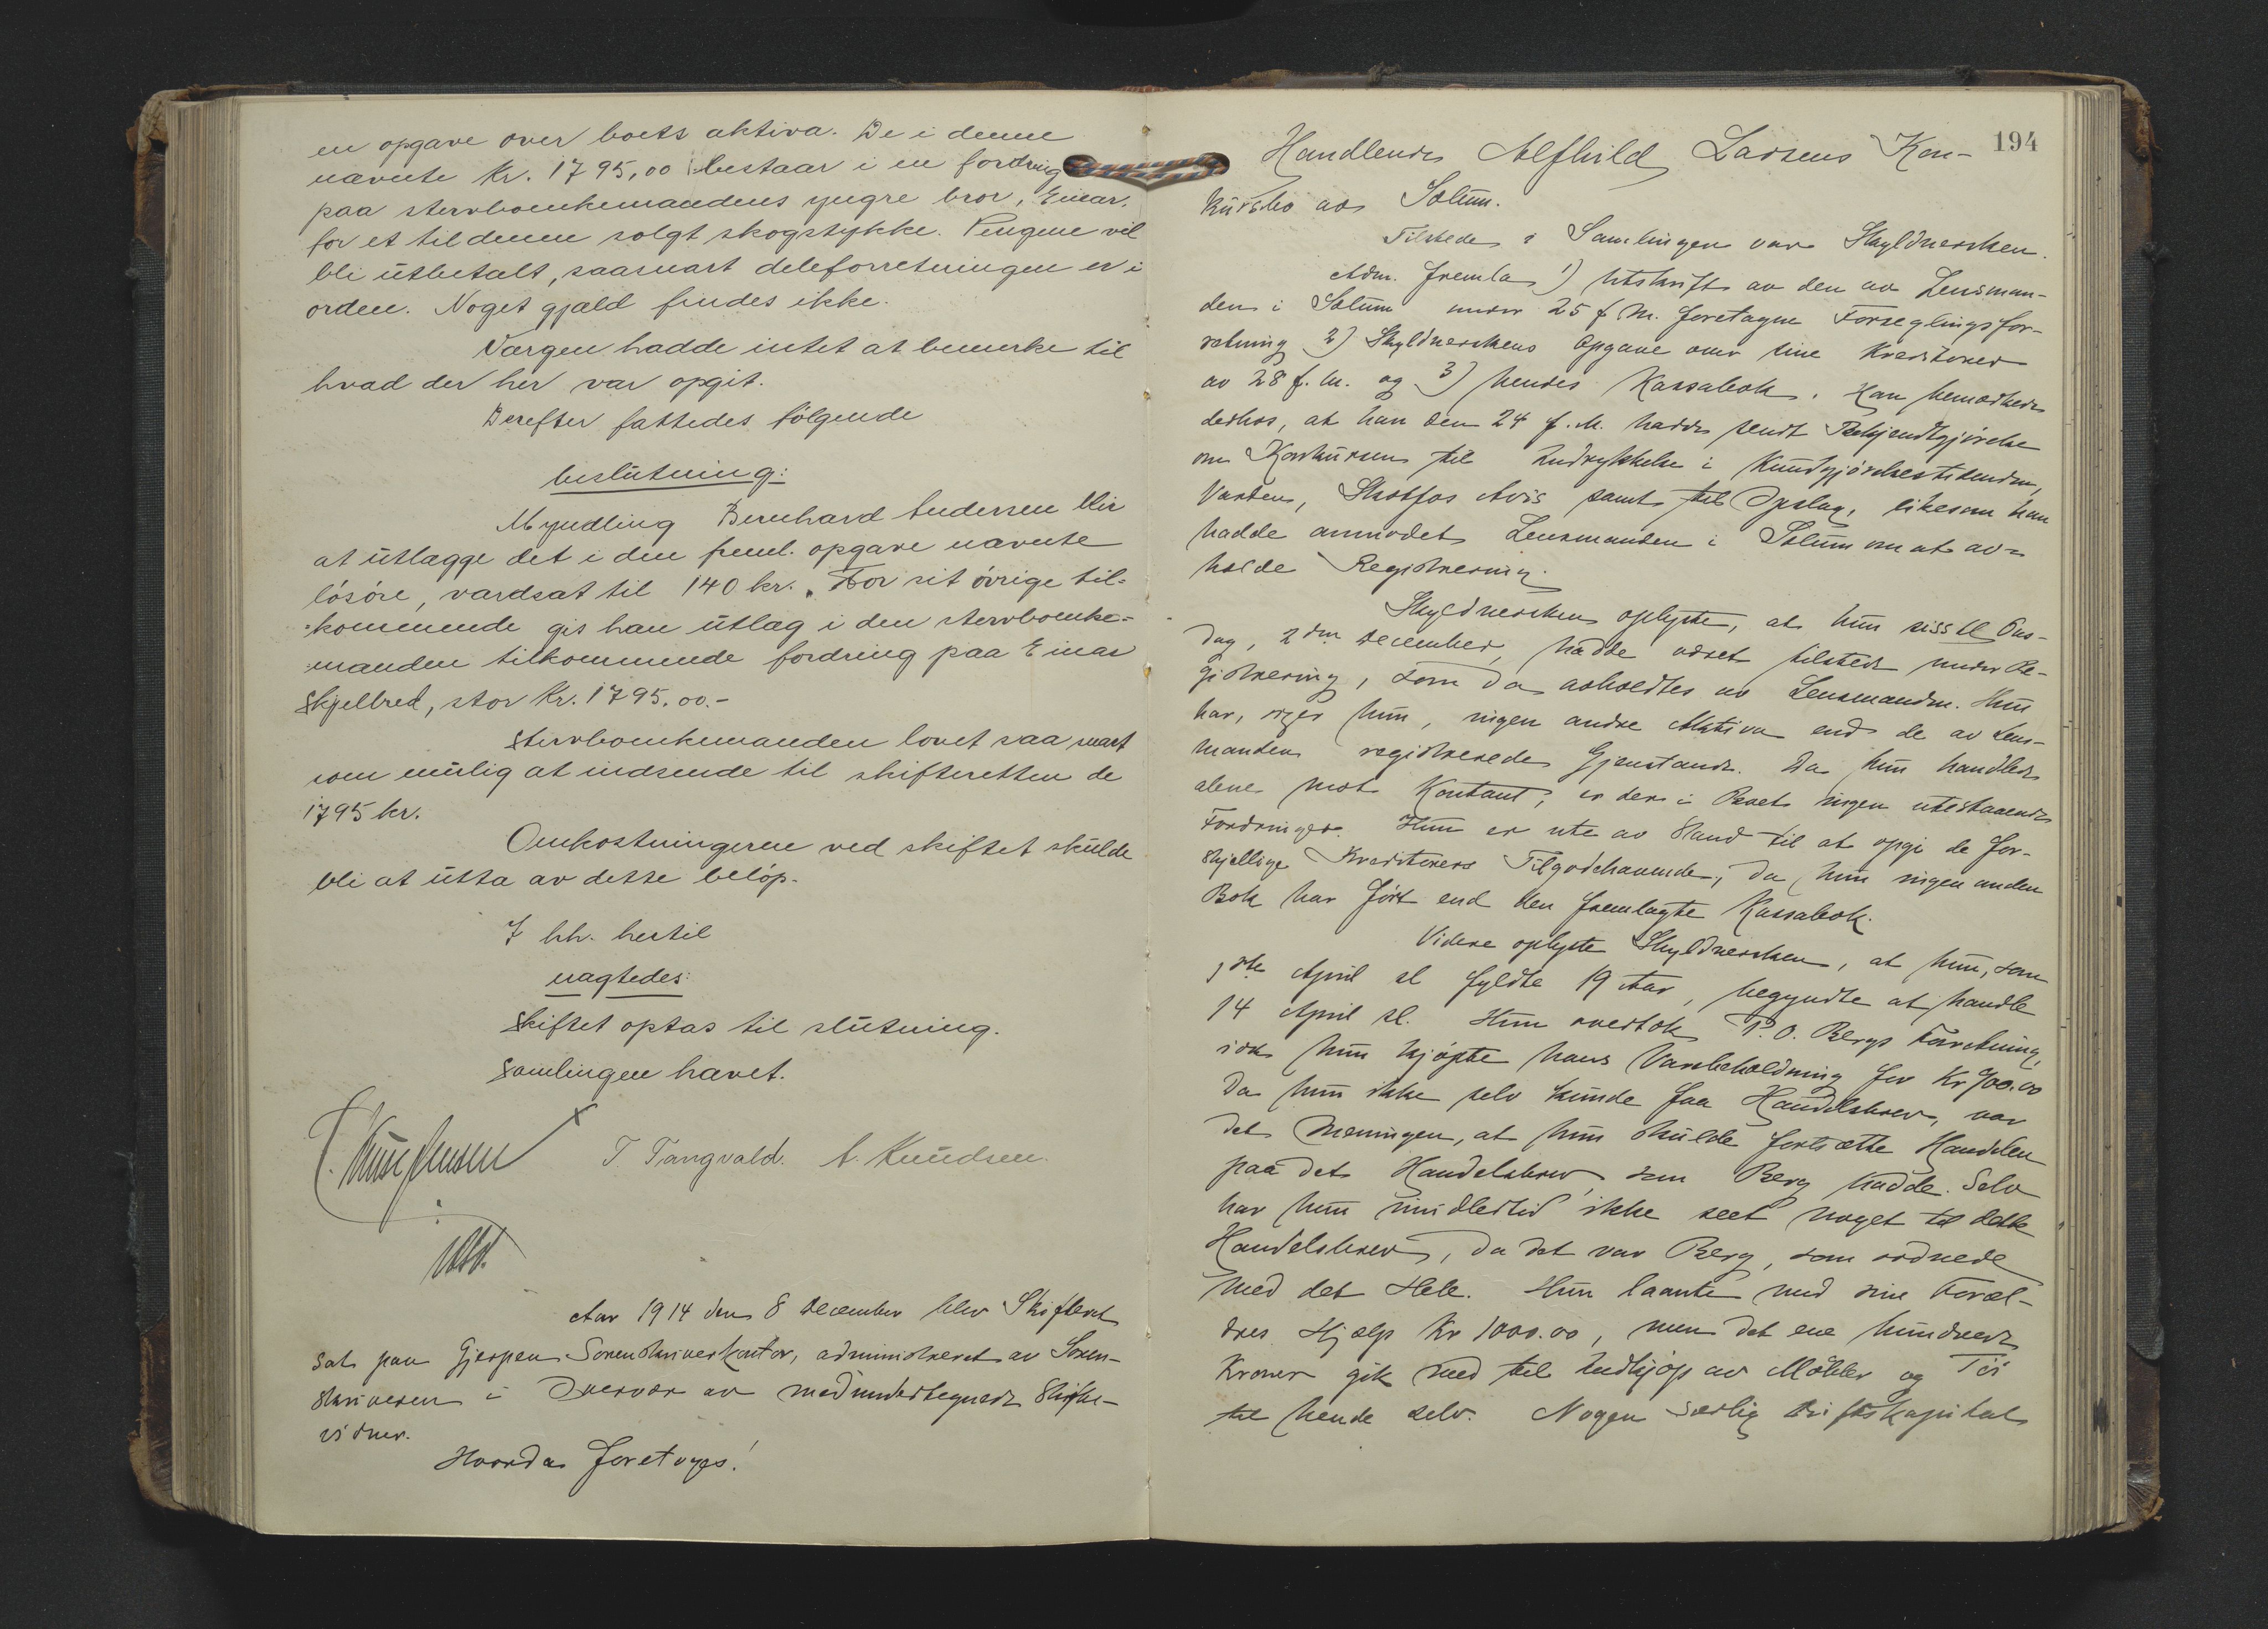 en opgave over boets aktiva. De i denne
nævnte Kr. 1795,00 bestaar i en fordring
paa stervboenkemandens yngre bror, Einar,
for et til denne solgt skogstykke. Pengene vil
bli utbetalt, saasnart deleforretningen er i
orden. Noget gjæld findes ikke.
Værgen hadde intet at bemerke til
hvad der her var opgit.
Derefter fattedes følgende
beslutning:
Myndling Bernhard Andersen blir
at utlægge det i den freml. opgave nævnte
løsøre, værdsat til 140 kr. For sit øvrige til-
kommende gis han utlæg i den stervboenke-
manden tilkommende fordring paa Einar
Skjelbred, stor Kr. 1795.00.-
Stervboenkemanden lovet saa snart
som mulig at indsende til skifteretten de
1795 kr.
Omkostningerne ved skiftet skulde
bli at utta av dette beløp.
I hh. hertil
vagtedes:
Skiftet optas til slutning.
Samlingen hævet.
T. Tangvald. A. Knudsen.
Aar 1914 den 8 December blev Skifteret
sat paa Gjerpen Sorenskriverkontor, administreret av Soren-
skriveren i Overvær av medundertegnede Skifte-
vidner.
Hvorda foretoges!
194
Handlende Alfhild Larsens Kon-
kursbo av Solum.
Tilstede i Samlingen var Skyldnersken.
Adm. fremla 1) Utskrift av den av Lensman-
den i Solum under 25 f. M. foretagne Forseglingsfor-
retning 2) Skyldnerskens Opgave over sine Kreditorer
av 28 f. M. og 3) hendes Kassabok. Han bemerkede
derhos, at han den 24 f. M. hadde sendt Bekjendtgjørelse
om Konkursen til Indrykkelse i Kundgjørelsestidende,
Varden, Skotfos Avis samt til Opslag, likesom han
hadde anmodet Lensmanden i Solum om at av-
holde Registrering.
Skyldnersken oplyste, at hun sidstl. Ons-
dag, 2den December, hadde været tilstede under Re-
gistrering, som da avholdtes av Lensmanden. Hun
har, siger hun, ingen andre Aktiva end de av Lens-
manden registrerede Gjenstande. Da hun handlede
alene mot Kontant, er der i Boet ingen utestaaende
Fordringer. Hun er ute av Stand til at opgi de for-
skjellige Kreditorers Tilgodehavende, da hun ingen anden
Bok har ført end den fremlagte Kassabok.
Videre oplyste Skyldnersken, at hun, som
1ste April sl fyldte 19 Aar, begyndte at handle
14 April sl. Hun overtok P. O. Bergs Forretning,
idet hun kjøpte hans Varebeholdning for Kr 900.00
Da hun ikke selv kunde faa Handelsbrev, var
det Meningen, at hun skulde fortsætte Handelen
paa det Handelsbrev, som Berg hadde. Selv
har hun imidlertid ikke seet noget til dette
Handelsbrev, da det var Berg, som ordnede
med det Hele. Hun laante med sine Foræl-
dres Hjælp Kr 1000.00, men det ene hundrede
Kroner gik med til Indkjøp av Møbler og Tøi
til hende selv. Nogen særlig Driftskapital